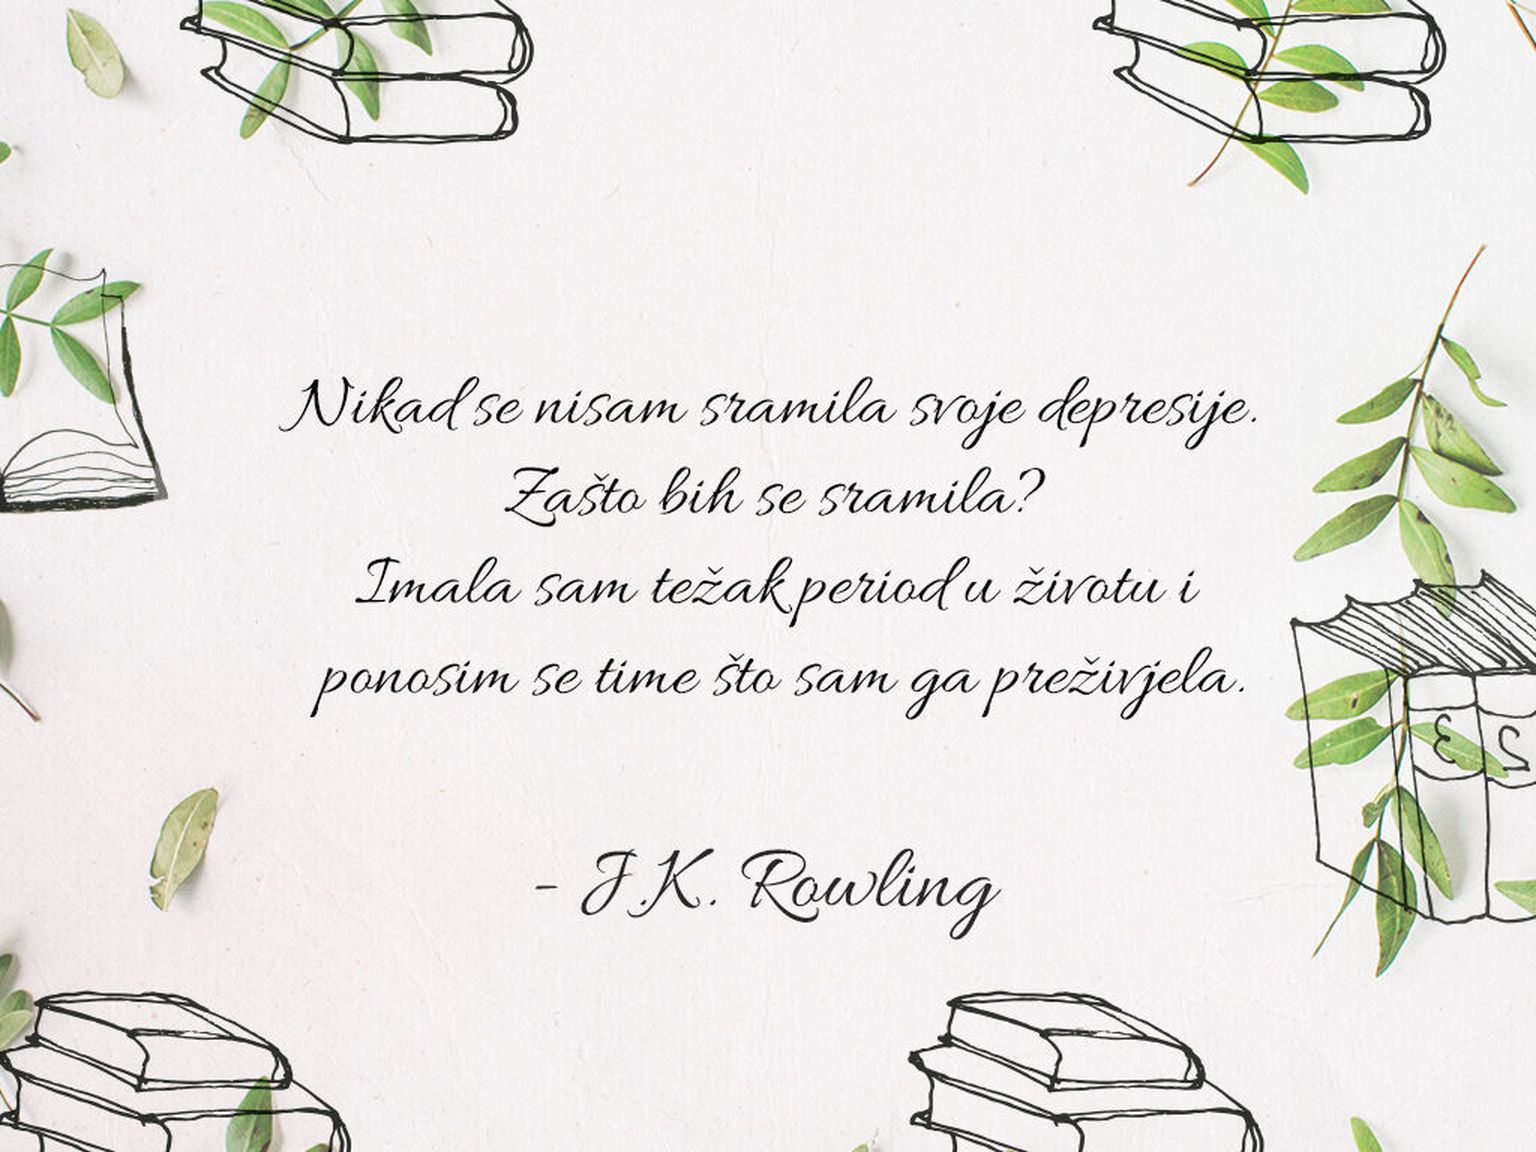 Nikad se nisam sramila svoje depresije.
Zašto bih se sramila?
Imala sam težak period u životu i
ponosim se time što sam ga preživjela.
- J.K. Rowling
3 2